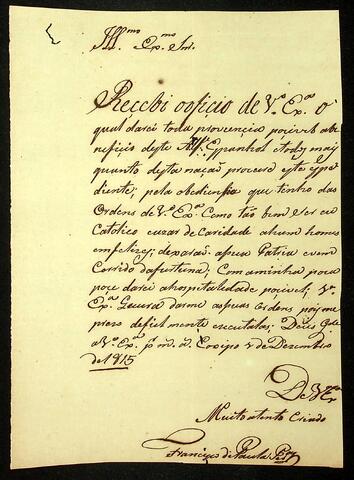 Ill.mo Ex.mo Snr.
Recebi o oficio de V.ª Ex.ª o
qual darei toda provencia pocivel abe
neficio deste Espanhol
quanto desta naçaõ procure este espe
diente; pela obediensia que tenho das
Ordens de V.ª Ex.ª Como taõ bem Ser eu
Catolico euzar de Caridade ahum homes
emfelizes; dexaraõ apua Patria evem
Corrido dafurtuna; Com aminha pouca
poçe darei ahospitalidade pocivel; V.ª
Ex.ª queira darme assuas Ordens
prezo defielmente executalas; Deus G.de
a V.ª Ex.ª p.r m.s a.s de Dezembro
de 1815
De V. Ex.ª
Muito atento Criado
Francisco de Paula